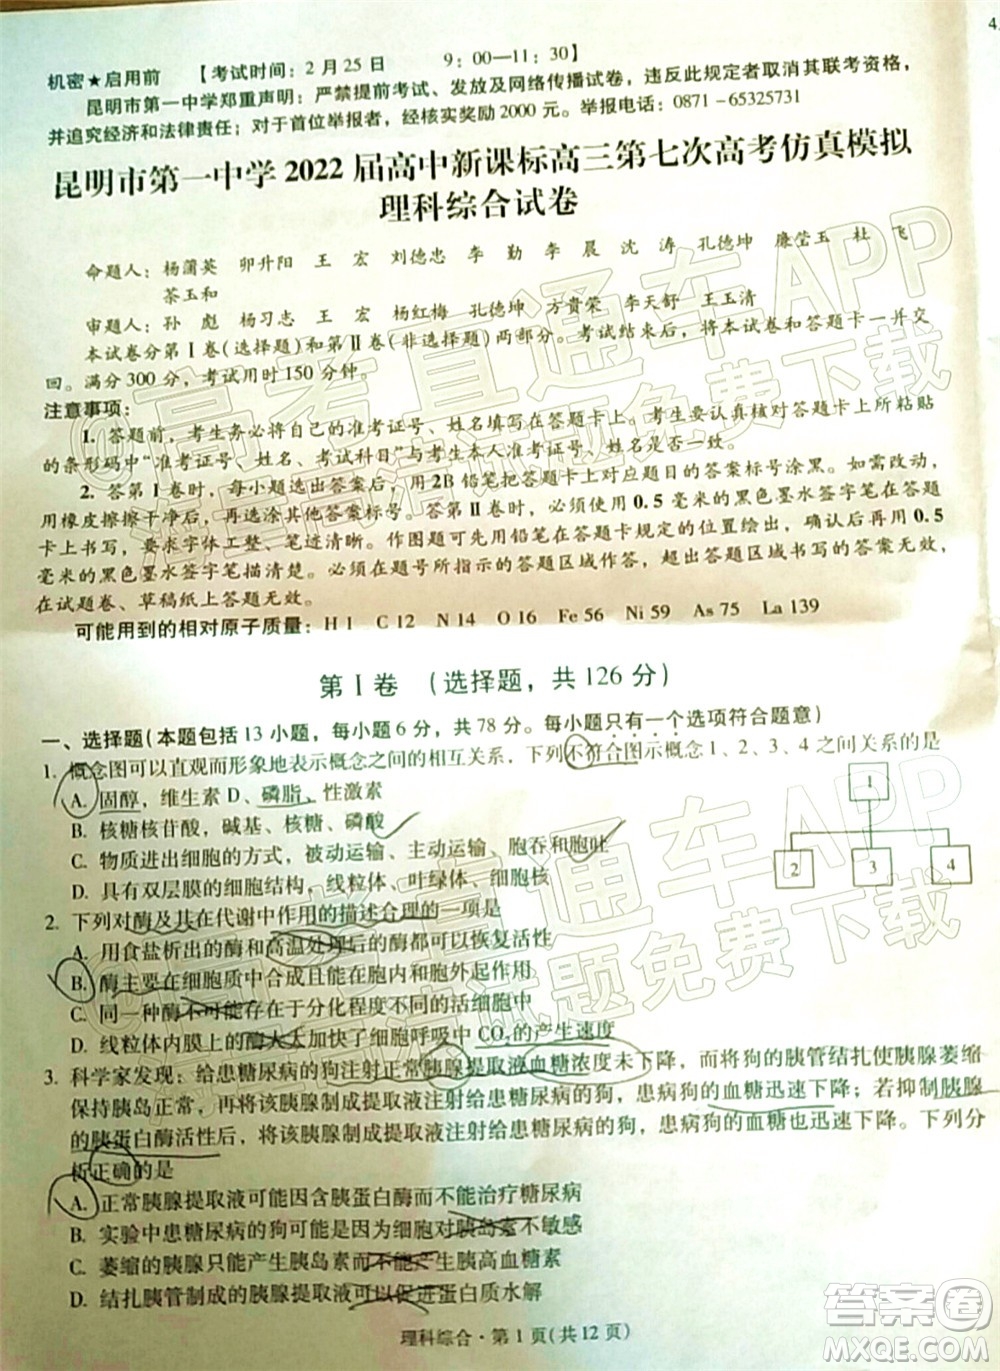 机密★启用前 【考试时间：2月25日 9：00—11：30】
昆明市第一中学郑重声明：严禁提前考试、发放及网络传播试卷，违反此规定者取消其联考资格，
并追究经济和法律责任；对于首位举报者，经核实奖励2000元。举报电话：0871-65325731
昆明市第一中学2022届高中新课标高三第七次高考仿真模拟
理科综合试卷
命题人：杨蒲英 卯升阳 王宏 刘德忠 李勤 李晨 沈涛 孔德坤 廉莹玉 杜飞
茶玉和
审题人：孙彪 杨习志 王宏 杨红梅 孔德坤 方贵荣 李天舒 王玉清
本试卷分第Ⅰ卷(选择题)和第Ⅱ卷(非选择题)两部分。考试结束后，将本试卷和答题卡一并交
回。满分300分，考试用时150分钟。
注意事项：
1. 答题前，考生务必将自己的准考证号、姓名填写在答题卡上。考生要认真核对答题卡上所粘贴
的条形码中“准考证号、姓名、考试科目”与考生本人准考证号、姓名是否一致。
2. 答第Ⅰ卷时，每小题选出答案后，用2B铅笔把答题卡上对应题目的答案标号涂黑。如需改动，
用橡皮擦擦干净后，再选涂其他答案标号。答第Ⅱ卷时，必须使用0.5毫米的黑色墨水签字笔在答题
卡上书写，要求字体工整、笔迹清晰。作图题可先用铅笔在答题卡规定的位置绘出，确认后再用0.5
毫米的黑色墨水签字笔描清楚。必须在题号所指示的答题区域作答，超出答题区域书写的答案无效，
在试题卷、草稿纸上答题无效。
可能用到的相对原子质量：H 1 C 12 N 14 O 16 Fe 56 Ni 59 As 75 La 139
第Ⅰ卷 (选择题，共126分)
一、选择题(本题包括13小题，每小题6分，共78分。每小题只有一个选项符合题意)
1. 概念图可以直观而形象地表示概念之间的相互关系，下列不符合图示概念1、2、3、4之间关系的是
A. 固醇，维生素D、磷脂、性激素
B. 核糖核苷酸，碱基、核糖、磷酸
C. 物质进出细胞的方式，被动运输、主动运输、胞吞和胞吐
D. 具有双层膜的细胞结构，线粒体、叶绿体、细胞核
1
2 3 4
2. 下列对酶及其在代谢中作用的描述合理的一项是
A. 用食盐析出的酶和高温处理后的酶都可以恢复活性
B. 酶主要在细胞质中合成且可能在胞内和胞外起作用
C. 同一种酶不可能存在于分化程度不同的活细胞中
D. 线粒体中的酶大大加快了细胞呼吸中CO₂的产生速度
3. 科学家发现：给患糖尿病的狗注射正常胰腺提取液血糖浓度未下降，而将狗的胰管结扎使胰腺萎缩
保持胰岛正常，再将该胰腺制成提取液注射给患糖尿病的狗，患病狗的血糖迅速下降；若抑制胰腺
的胰蛋白酶活性后，将该胰腺制成提取液注射给患糖尿病的狗，患病狗的血糖也迅速下降。下列分
析正确的是
A. 正常胰腺提取液可能因含胰蛋白酶而不能治疗糖尿病
B. 实验中患糖尿病的狗可能是因为细胞对胰岛素不敏感
C. 萎缩的胰腺只能产生胰岛素而不能产生胰高血糖素
D. 结扎胰管制成的胰腺提取液可以促进蛋白质水解
理科综合·第1页(共12页)
4.
高考直通车APP
海量备考试题免费下载
高考直通车APP
海量备考试题免费下载
答案圈
MXQE.COM